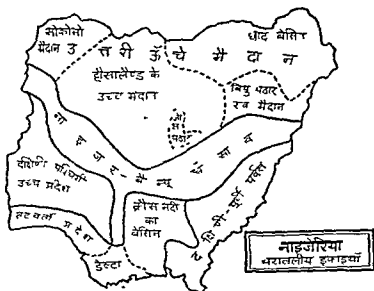 सोकोतो
मैदान
उ त्तरी ऊँ चे मै दा न
चाड बेसिन
हौसालैण्ड के
उच्च मैदान
बियु पठार
एवं मैदान
जोस
पठार
ना इ जर - बै न्यू ट्रफ
दक्षिणी पश्चिमी
उच्च प्रदेश
तटवर्ती प्रदेश
क्रौस नदी
का
बेसिन
डेल्टा
दक्षिणी-पूर्वी पर्वत
नाइजेरिया
धरातलीय इकाइयाँ